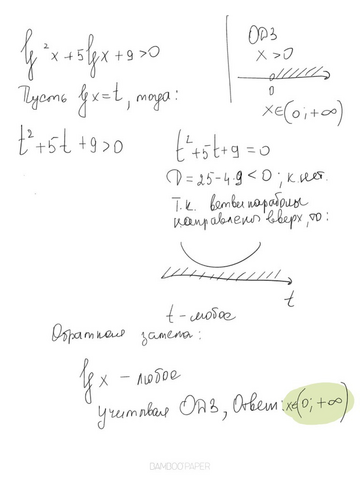 lg²x + 5lgx + 9 > 0
Пусть lgx = t, тогда:
t² + 5t + 9 > 0
ОДЗ
x > 0
0
x∈(0; +∞)
t² + 5t + 9 = 0
D = 25 - 4·9 < 0; к. нет.
Т.к. ветви параболы
направлены вверх, то:
t
t - любое
Обратная замена:
lgx - любое
учитывая ОДЗ, Ответ: x∈(0; +∞)
BAMBOO PAPER